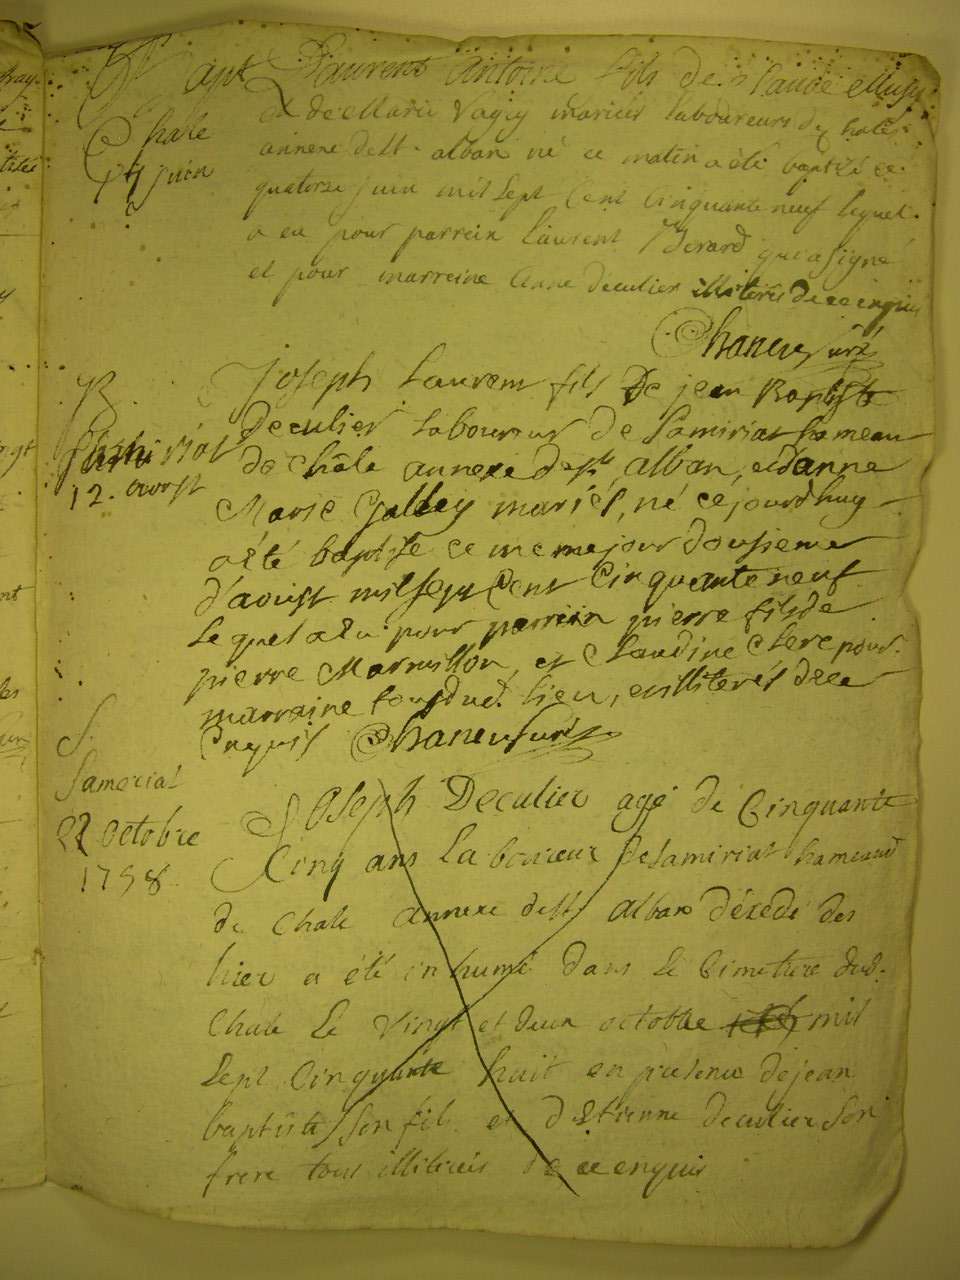 Bapt
Chale
14 juin
Laurent Antoine fils de Claude
et de Marie Vagey mariés laboureurs de Chale
annexe de St. alban né ce matin a été baptizé ce
quatorze juin mil sept Cent Cinquante neuf lequel
a eu pour parrein Laurent Berard qui a signé
et pour marreine Anne Deculier illiterés de ce enquis
Chaneu Curé
B.
Samiriat
12. avost
Joseph Laurent fils De jean Baptiste
Deculier Laboureur de Samiriat hameau
de Châle annexe de St. alban, et d'anne
Marie Galley mariés, né ce jourd'huy
a été baptisé ce meme jour dousieme
d'aoust mil sept Cent Cinquante neuf
Lequel a eu pour parrein pierre fils de
pierre Marmillon, et Claudine Clerc pour
marraine tous dud. lieu, et illiterés de ce
enquis Chaneu Curé
S.
Sameriat
22 octobre
1758
Joseph Deculier agé de Cinquante
Cinq ans Laboureur de Samiriat hameaud
de Chale annexe de St alban décedé des
hier a été inhumé dans le Cimetiere dud.
Chale Le Vingt et deux octobre mil
Sept Cinquante huit en présence de jean
baptiste son fils et d'Etienne Deculier Son
frere tous illiterés de ce enquis